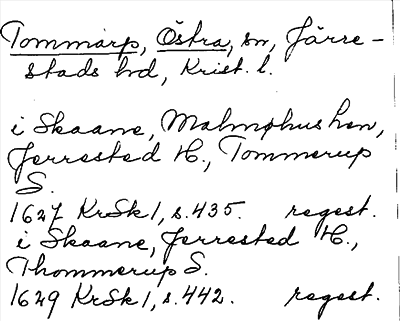 Tommarp, Östra, sn, Järre-
stads hd, Krist. l.
i Skaane, Malmøhus Len,
Jerrested H., Tommerup
S.
1627 KrSk 1, s. 435. regest.
i Skaane, Jerrested H.,
Thommerup S.
1629 KrSk 1, s. 442. regest.